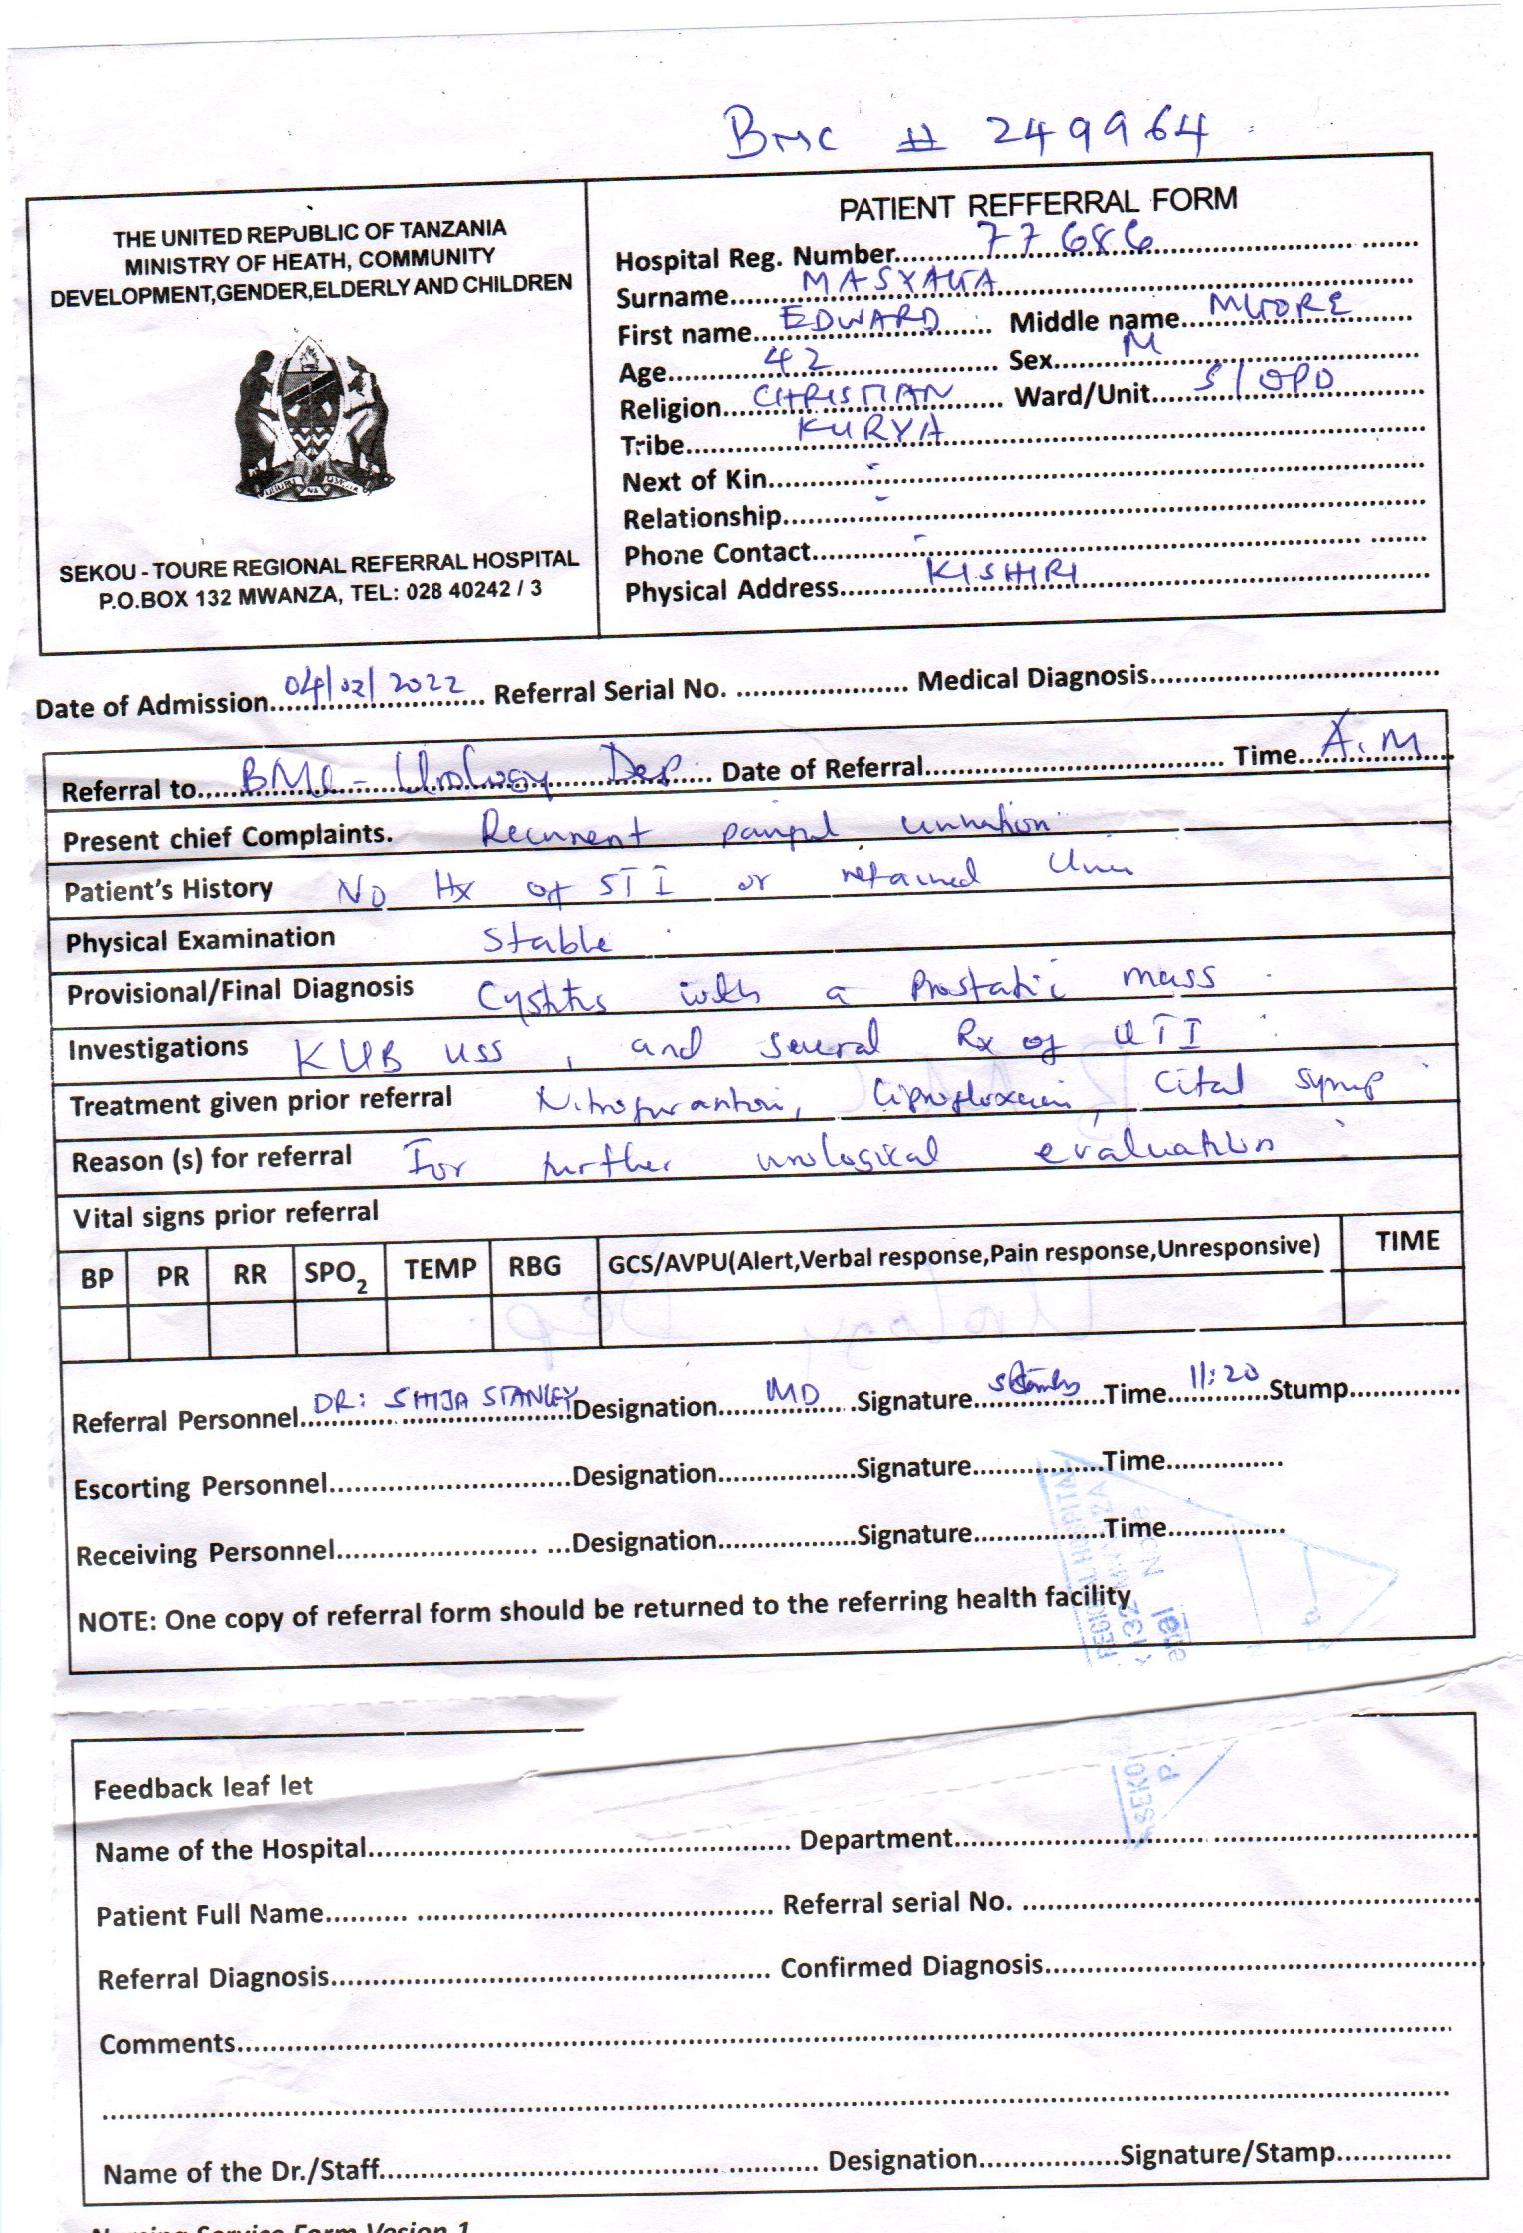 BMC # 249964
THE UNITED REPUBLIC OF TANZANIA
MINISTRY OF HEATH, COMMUNITY
DEVELOPMENT,GENDER,ELDERLY AND CHILDREN
UHURU NA UMOJA
SEKOU - TOURE REGIONAL REFERRAL HOSPITAL
P.O.BOX 132 MWANZA, TEL: 028 40242 / 3
PATIENT REFFERRAL FORM
Hospital Reg. Number 77686
Surname
First name EDWARD Middle name
Age 42 Sex M
Religion CHRISTIAN Ward/Unit S/OPD
Tribe KURYA
Next of Kin -
Relationship -
Phone Contact -
Physical Address KISHIRI
Date of Admission 04/02/2022 Referral Serial No. Medical Diagnosis
Referral to BMC - Urology Dep Date of Referral Time A.M
Present chief Complaints. Recurrent painful urination
Patient's History No Hx of STI or retained
Physical Examination Stable
Provisional/Final Diagnosis Cystitis with a Prostatic mass
Investigations KUB USS, and several Rx of UTI
Treatment given prior referral Nitrofurantoin, Ciprofloxacin, Cital syrup
Reason (s) for referral For further urological evaluation
Vital signs prior referral
BP PR RR SPO2 TEMP RBG GCS/AVPU(Alert,Verbal response,Pain response,Unresponsive) TIME
Referral Personnel DR: SHIJA STANLEY Designation MD Signature Time 11:20 Stump
Escorting Personnel Designation Signature Time
Receiving Personnel Designation Signature Time
NOTE: One copy of referral form should be returned to the referring health facility
Feedback leaf let
Name of the Hospital Department
Patient Full Name Referral serial No.
Referral Diagnosis Confirmed Diagnosis
Comments
Name of the Dr./Staff Designation Signature/Stamp
Nursing Service Form Vesion 1